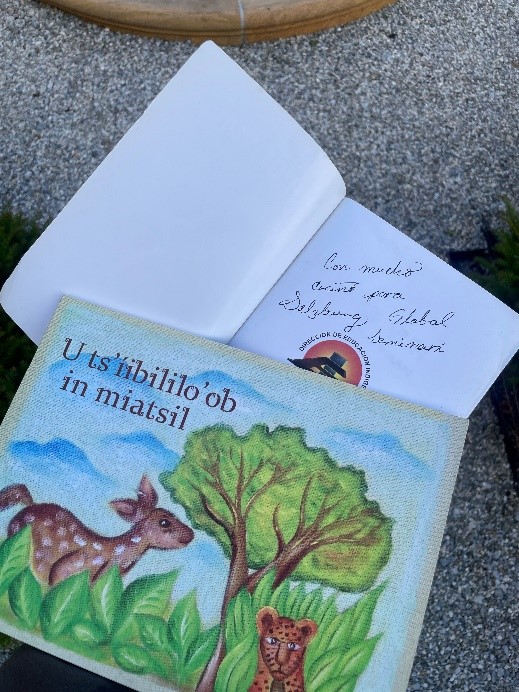 Con mucho
cariño para
Salzburg Global
Seminari
DIRECCIÓN DE EDUCACIÓN INDÍGE
U ts'íibililo'ob
in miatsil